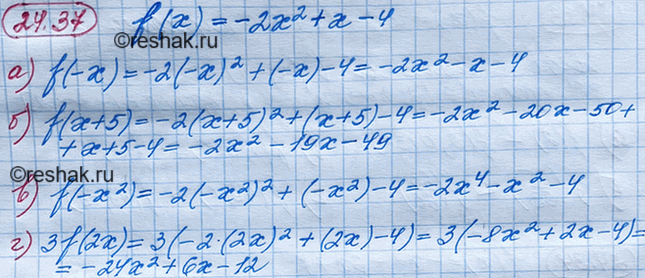 24.37 f(x) = -2x² + x - 4
©reshak.ru
а) f(-x) = -2(-x)² + (-x) - 4 = -2x² - x - 4
б) f(x+5) = -2(x+5)² + (x+5) - 4 = -2x² - 20x - 50 +
+ x + 5 - 4 = -2x² - 19x - 49
©reshak.ru
в) f(-x²) = -2(-x²)² + (-x²) - 4 = -2x⁴ - x² - 4
г) 3f(2x) = 3(-2·(2x)² + (2x) - 4) = 3(-8x² + 2x - 4) =
= -24x² + 6x - 12